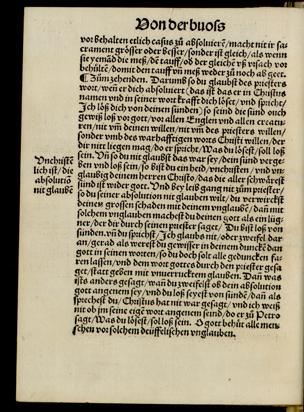 Von der buoss
vor behalten etlich casus zů absoluierē/macht nit ir sa-
crament grösser oder besser/sonder ist gleich/als wenn
sie yemād die meß/dē tauff/ob der gleichē vß vrsach vor
behůltē/domit den tauff vn̄ meß weder zů noch ab geet.
¶ Zům zehenden. Darumb so du glaubst des priesters
wort/weñ er dich absoluiert (das ist das er in Christus
namen vnd in seiner wort krafft dich löset/vnd spricht/
Ich löß dich von deinen sünden) so seind die sünd ouch
gewiß loß vor gott/vor allen Englen vnd allen creatu-
ren/nit vm̄ deinen willen/nit vm̄ des priesters willen/
sonder vmb des warhafftigen worts Christi willen/der
dir nit liegen mag/do er spricht/Was du lösest/soll loß
sein. Vn̄ so du nit glaubst das war sey/dein sünd verge-
ben vnd loß sein/so bist du ein heid/vnchristen/vnd vn-
glaubig deinem herren Christo/das die aller schwärest
sünd ist wider gott. Vnd bey leib gang nit zům priester/
so du seiner absolution nit glauben wilt/du verwirckst
deinen grossen schaden mit deinem vnglaubē/dañ mit
solchem vnglauben machest du deinen gott als ein lüg-
ner/der dir durch seinen priester saget/Du bist loß von
sünden. vn̄ du sprichst/Ich glaubs nit/oder zweifel dar
an/gerad als werest du gewisser in deinem dunckē dan
gott in seinen worten/so du doch solt alle geduncken fa-
ren lassen/vnd dem wort gottes durch den priester gesa
get/statt geben mit vnuerrucktem glauben. Dañ was
ists anders gesagt/wañ du zweifelst ob dein absolution
gott angenem sey/vnd du seyest von sündē/dañ als
sprechest du/Christus hat nit war gesagt/vnd ich weiß
nit ob jm seine eigē wort angenem seind/do er zů Petro
sagt/Was du lösest/sol loß sein. O gott behüt alle men-
schen vor solchem deüffelischen vnglauben.
Vnchristē
lich ist/die
absolutiō
nit glaubē